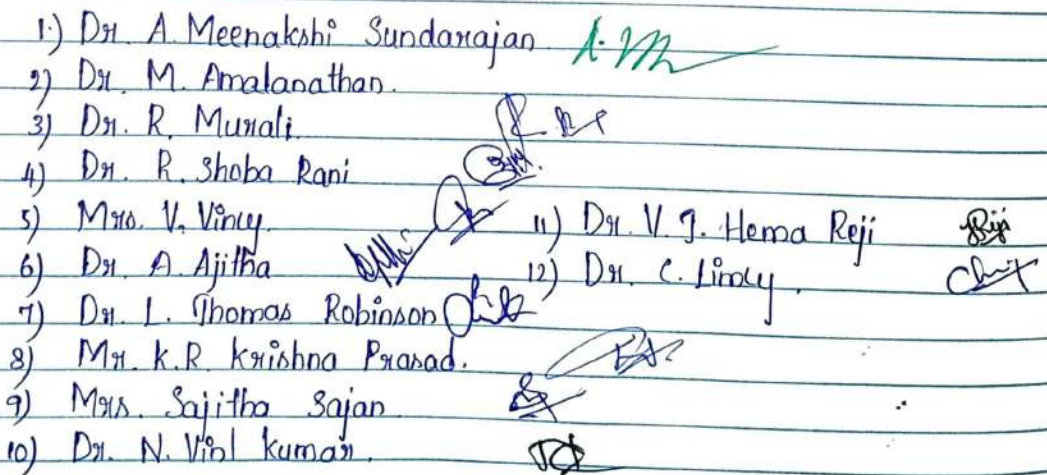 1.) Dr. A. Meenakshi Sundarajan
2) Dr. M. Amalanathan.
3) Dr. R. Murali.
4) Dr. R. Shoba Rani
5) Mrs. V. Vincy.
6) Dr. A. Ajitha
7) Dr. L. Thomas Robinson
8) Mr. K.R. Krishna Prasad.
9) Mrs. Sajitha Sajan
10) Dr. N. Vinl Kumar.
11) Dr. V. J. Hema Reji
12) Dr. C. Lincy.